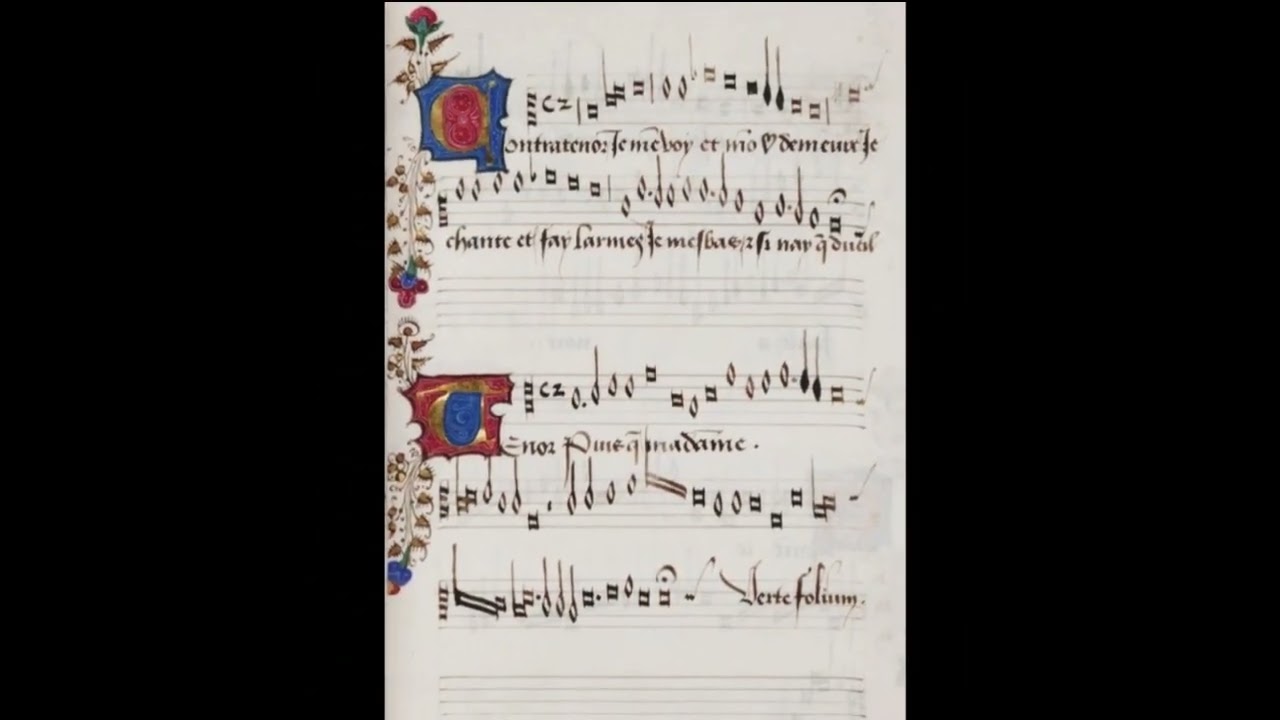 Contratenor Je me voy et mō ♥ demeure Je
chante et fay larmes Je mesbas ⁊ si nay q̄ dueil
Tenor Puis q̄ madame.
Verte folium.